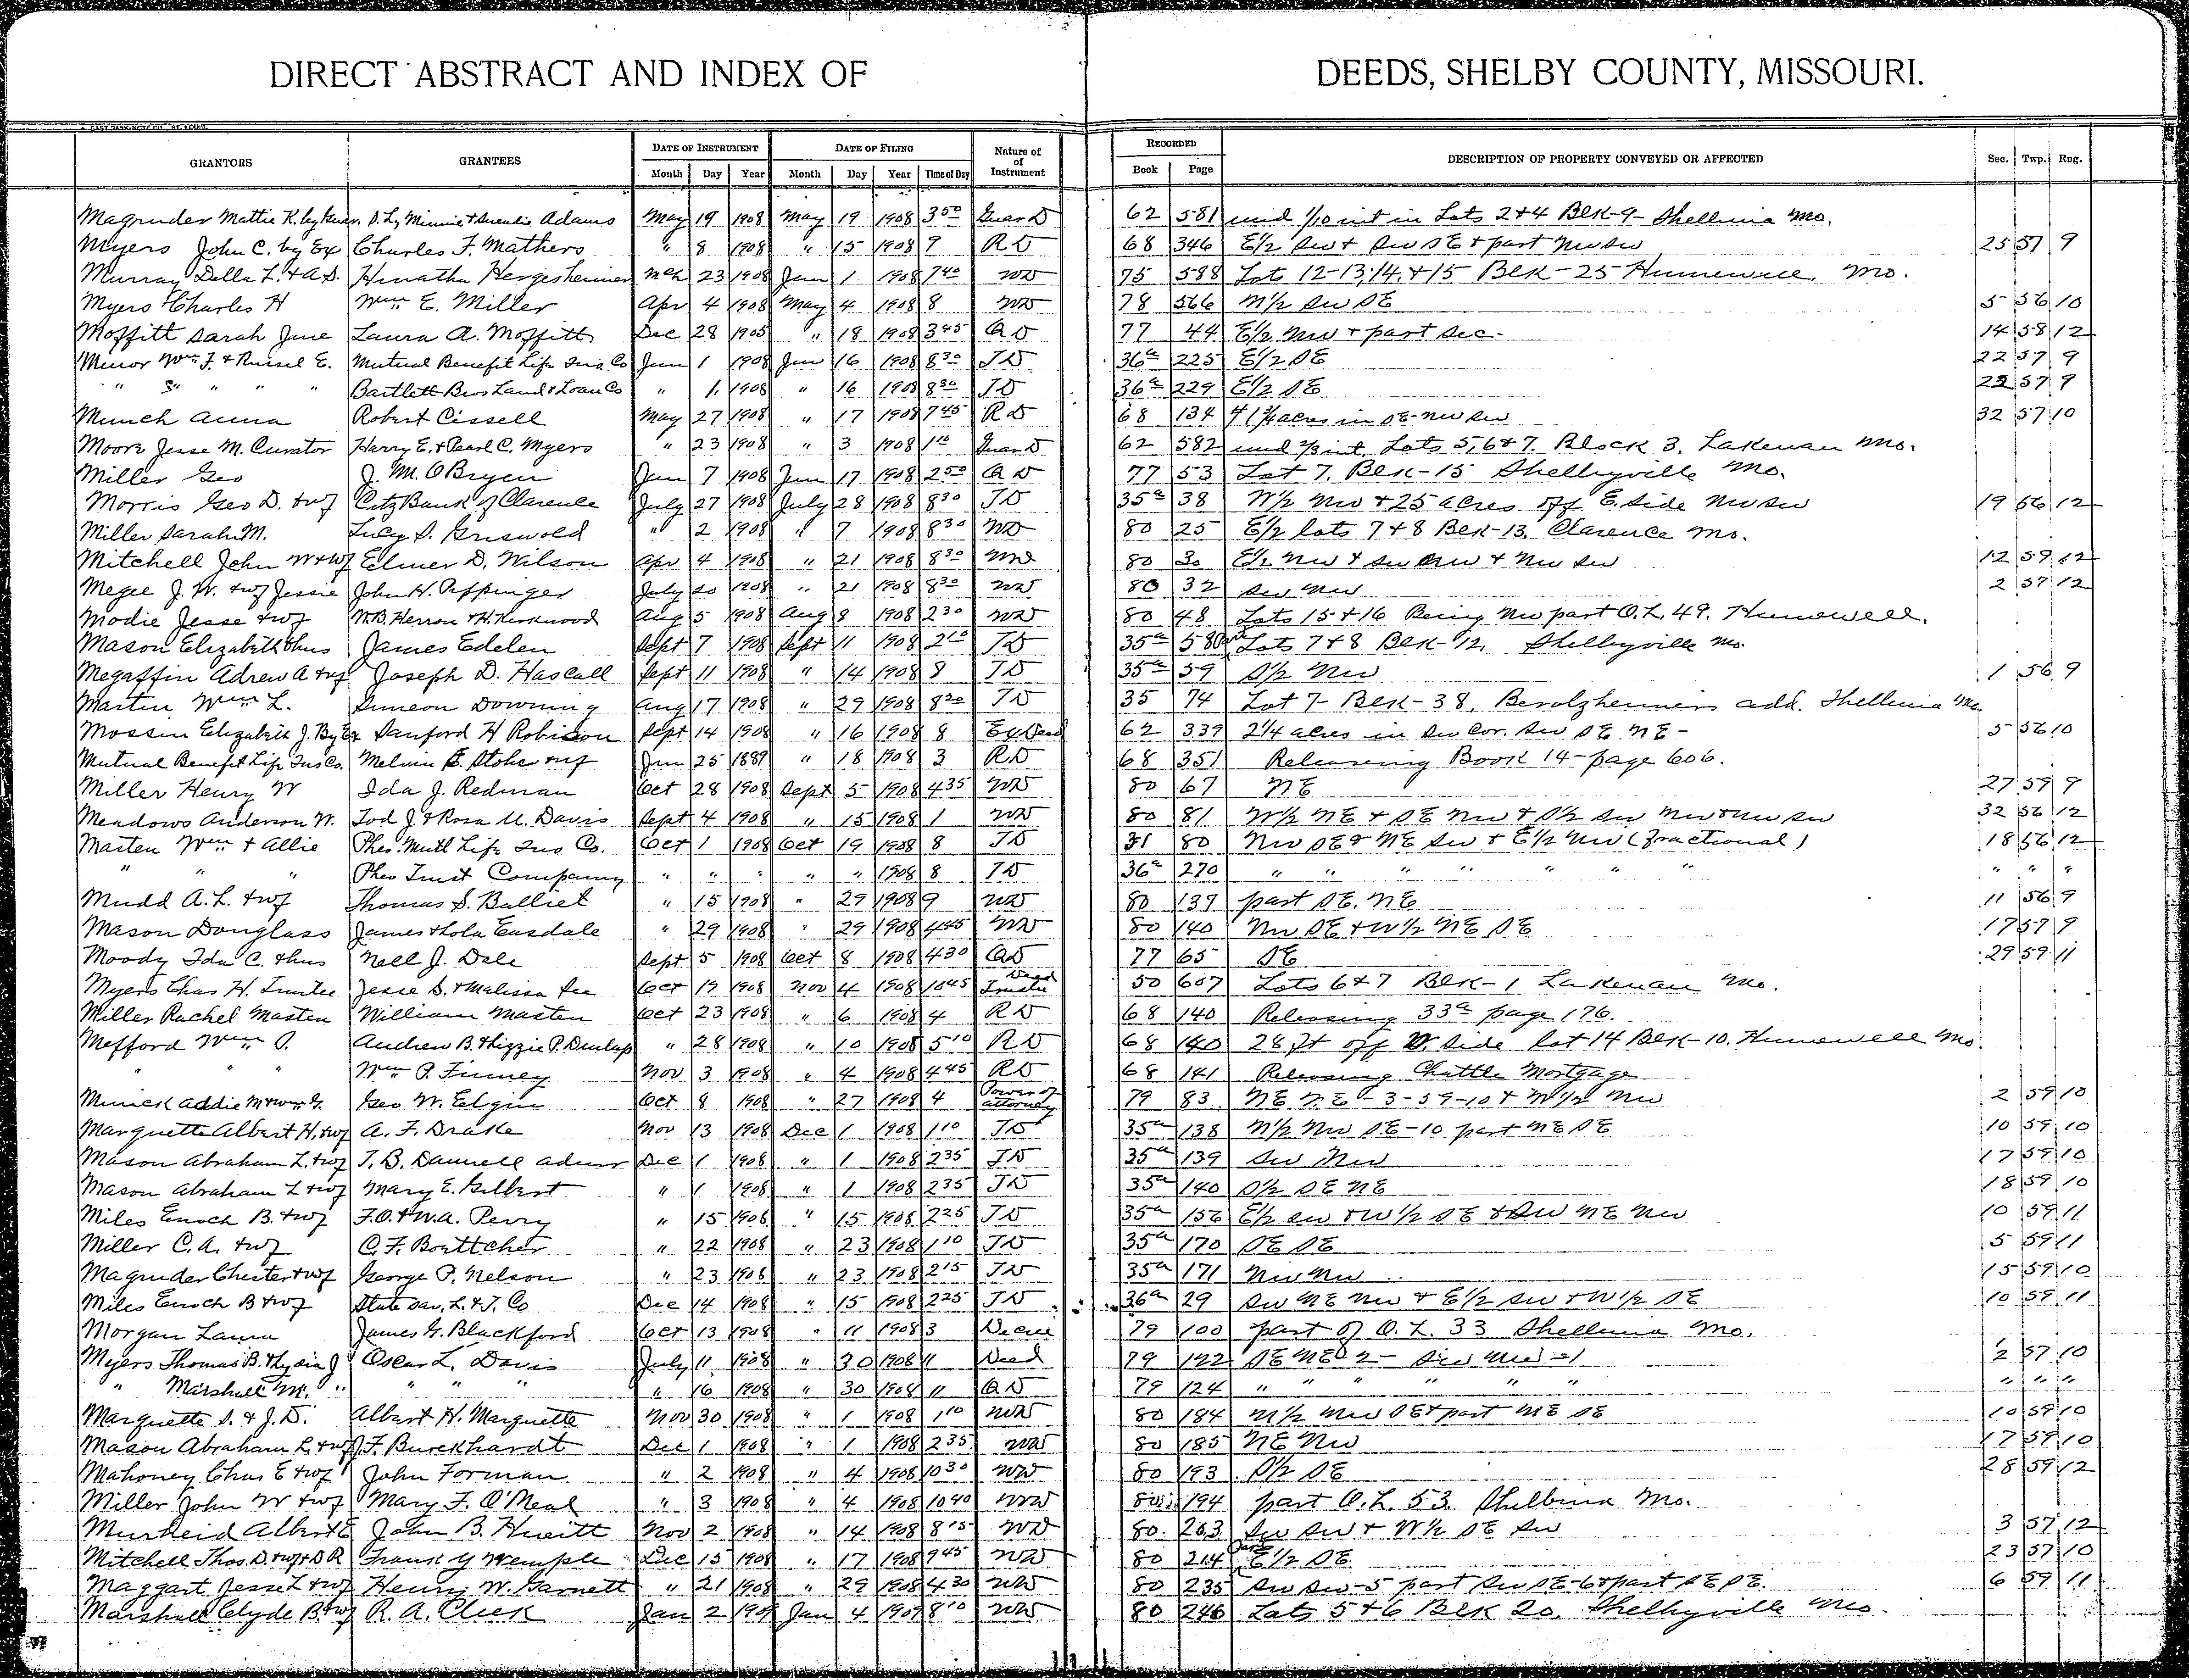 DIRECT ABSTRACT AND INDEX OF DEEDS, SHELBY COUNTY, MISSOURI.
GRANTORS GRANTEES DATE OF INSTRUMENT DATE OF FILING Nature of Instrument RECORDED DESCRIPTION OF PROPERTY CONVEYED OR AFFECTED Sec. Twp. Rng.
Month Day Year Month Day Year Time of Day Book Page
Magruder Mattie K. by Adams May 19 1908 May 19 1908 3 50 Guar D 62 581 und 1/10 int in Lots 2 & 4 Blk-9- Shelbina Mo.
Myers John C. by Ex Charles F. Mathers " 8 1908 " 15 1908 9 RD 68 346 E1/2 SW & SW SE & part NW SW 25 57 9
Murray Della L. & A.S. Hergesheimer Mch 23 1908 1 1908 7 40 WD 75 588 Lots 12-13, 14, & 15 Blk-25 Hunnewell, Mo.
Myers Charles H Wm E. Miller Apr 4 1908 May 4 1908 8 WD 78 566 N1/2 SW SE 5 56 10
Moffitt Sarah Jane Laura A. Moffitt Dec 28 1905 " 18 1908 3 45 QD 77 44 E1/2 NW & part Sec- 14 58 12
Minor Wm F. & Russel E. Mutual Benefit Life Ins. Co Jun 1 1908 Jun 16 1908 8 30 TD 36a 225 E1/2 SE 22 57 9
" " " " Bartlett Bros Land & Loan Co " 1 1908 " 16 1908 8 30 TD 36a 229 E1/2 SE 22 57 9
Munch Anna Robert Cissell May 27 1908 " 17 1908 7 45 RD 68 134 acres in SE-NW SW 32 57 10
Moore Jesse M. Curator Harry E. & Pearl C. Myers " 23 1908 " 3 1908 1 10 Guar D 62 582 und int Lots 5, 6 & 7. Block 3. Lakenan Mo.
Miller Geo J. M. O Bryen Jun 7 1908 Jun 17 1908 2 50 QD 77 53 Lot 7. Blk-15 Shelbyville Mo.
Morris Geo D. & wf Citz Bank of Clarence July 27 1908 July 28 1908 8 30 TD 35a 38 W1/2 NW & 25 acres off E. side NW SW 19 56 12
Miller Sarah M. Lucy S. Griswold " 2 1908 " 7 1908 8 30 WD 80 25 E1/2 lots 7 & 8 Blk-13. Clarence Mo.
Mitchell John W & wf Elmer D. Wilson Apr 4 1908 " 21 1908 8 30 WD 80 30 E1/2 NW & SW NW & NW SW 12 59 12
Megee J. W. & wf Jessie John H. Puffinger July 20 1908 " 21 1908 8 30 WD 80 32 SW NW 2 57 12
Modie Jesse & wf W.B. Herron & H. Kirkwood Aug 5 1908 Aug 8 1908 2 30 WD 80 48 Lots 15 & 16 Being NW part O.L. 49. Hunnewell.
Mason Elizabeth & hus James Edelen Sept 7 1908 Sept 11 1908 2 10 TD 35a 58 Lots 7 & 8 Blk-12, Shelbyville Mo.
Megaffin Adrew A & wf Joseph D. Hascall Sept 11 1908 " 14 1908 8 TD 35a 59 S1/2 NW 1 56 9
Martin Wm L. Simeon Downing Aug 17 1908 " 29 1908 8 20 TD 35 74 Lot 7- Blk-38. Berolzheimers add. Shelbina Mo.
Mossin Elizabeth J. By Ex Sanford H Robison Sept 14 1908 " 16 1908 8 Ex Deed 62 339 2 1/4 acres in SW Cor. SW SE NE- 5 56 10
Mutual Benefit Life Ins Co. Melvin E. Stohr & wf Jun 25 1889 " 18 1908 3 RD 68 351 Releasing Book 14-page 606.
Miller Henry W Ida J. Redman Oct 28 1908 Sept 5 1908 4 35 WD 80 67 NE 27 59 9
Meadows Anderson W. Tod J. & Rosa U. Davis Sept 4 1908 " 15 1908 1 WD 80 81 W1/2 NE & SE NW & S1/2 SW NW & NW SW 32 56 12
Masten Wm & Allie Phx. Mutl Life Ins Co. Oct 1 1908 Oct 19 1908 8 TD 31 80 NW SE & NE SW & E1/2 NW (Fractional) 18 56 12
" " " Phx Trust Company " " " " " 1908 8 TD 36a 270 " " " " " " " " " "
Mudd A. L. & wf Thomas S. Balliet " 15 1908 " 29 1908 9 WD 80 137 part SE. NE 11 56 9
Mason Douglass James & Lola Easdale " 29 1908 " 29 1908 4 45 WD 80 140 NW SE & W1/2 NE SE 17 57 9
Moody Ida C. & hus Nell J. Dale Sept 5 1908 Oct 8 1908 4 30 QD 77 65 SE 29 59 11
Myers Chas H. Trustee Jesse S. & Malissa Lee Oct 19 1908 Nov 4 1908 10 45 Deed Trustee 50 607 Lots 6 & 7 Blk-1 Lakenan Mo.
Miller Rachel Masten William Masten Oct 23 1908 " 6 1908 4 RD 68 140 Releasing 33a page 176.
Mefford Wm P. Andrew B. & Lizzie P. Dunlap " 28 1908 " 10 1908 5 10 RD 68 140 28 ft off W. Side Lot 14 Blk-10. Hunnewell Mo
" " " Wm P. Finney Nov 3 1908 " 4 1908 4 45 RD 68 141 Releasing Chattle Mortgage
Minick Addie M & Wm G. Geo W. Elgin Oct 8 1908 " 27 1908 4 Power of attorney 79 83 NE NE-3-59-10 & N1/2 NW 2 59 10
Marquette Albert H. & wf A. F. Drake Nov 13 1908 Dec 1 1908 1 10 TD 35a 138 N1/2 NW SE-10 part NE SE 10 59 10
Mason Abraham L. & wf T. B. Damrell admr Dec 1 1908 " 1 1908 2 35 TD 35a 139 SW NW 17 59 10
Mason Abraham L & wf Mary E. Gilbert " 1 1908 " 1 1908 2 35 TD 35a 140 S1/2 SE NE 18 59 10
Miles Enoch B. & wf F.O. & W.A. Perry " 15 1908 " 15 1908 2 25 TD 35a 156 E1/2 SW & W1/2 SE & SW NE NW 10 59 11
Miller C. A. & wf C. F. Boettcher " 22 1908 " 23 1908 1 10 TD 35a 170 SE SE 5 59 11
Magruder Chester & wf George P. Nelson " 23 1908 " 23 1908 2 15 TD 35a 171 NW NW 15 59 10
Miles Enoch B & wf State Sav. L. & T. Co Dec 14 1908 " 15 1908 2 25 TD 36a 29 SW NE NW & E1/2 SW & W1/2 SE 10 59 11
Morgan Laura James G. Blackford Oct 13 1908 " 11 1908 3 Decree 79 100 part of O.L. 33 Shelbina Mo.
Myers Thomas B. & Lydia J Oscar L. Davis July 11 1908 " 30 1908 11 Deed 79 122 SE NE 2- SW NW-1 2 57 10
" Marshall M. " " " " " 16 1908 " 30 1908 11 QD 79 124 " " " " " " " " "
Marquette S. & J. D. Albert H. Marquette Nov 30 1908 " 1 1908 1 10 WD 80 184 N1/2 NW SE & part NE SE 10 59 10
Mason Abraham L & wf J. F. Burckhardt Dec 1 1908 " 1 1908 2 35 WD 80 185 NE NW 17 59 10
Mahoney Chas E & wf John Forman " 2 1908 " 4 1908 10 30 WD 80 193 S1/2 SE 28 59 12
Miller John W & wf Mary F. O'Neal " 3 1908 " 4 1908 10 40 WD 80 194 part O.L. 53. Shelbina Mo.
Murheid Albert E John B. Hewitt Nov 2 1908 " 14 1908 8 15 WD 80. 203 SW SW & W1/2 SE SW 3 57 12
Mitchell Thos. D. & wf & D R Frank Y Wemple Dec 15 1908 " 17 1908 9 45 WD 80 214 Part E1/2 SE 23 57 10
Maggart Jesse L & wf Henry W. Garnett " 21 1908 " 29 1908 4 30 WD 80 235 SW SW-5 part SW SE-6 & part SE SE. 6 59 11
Marshall Clyde B & wf R. A. Click Jan 2 1909 Jan 4 1909 8 10 WD 80 246 Lots 5 & 6 Blk 20. Shelbyville Mo.